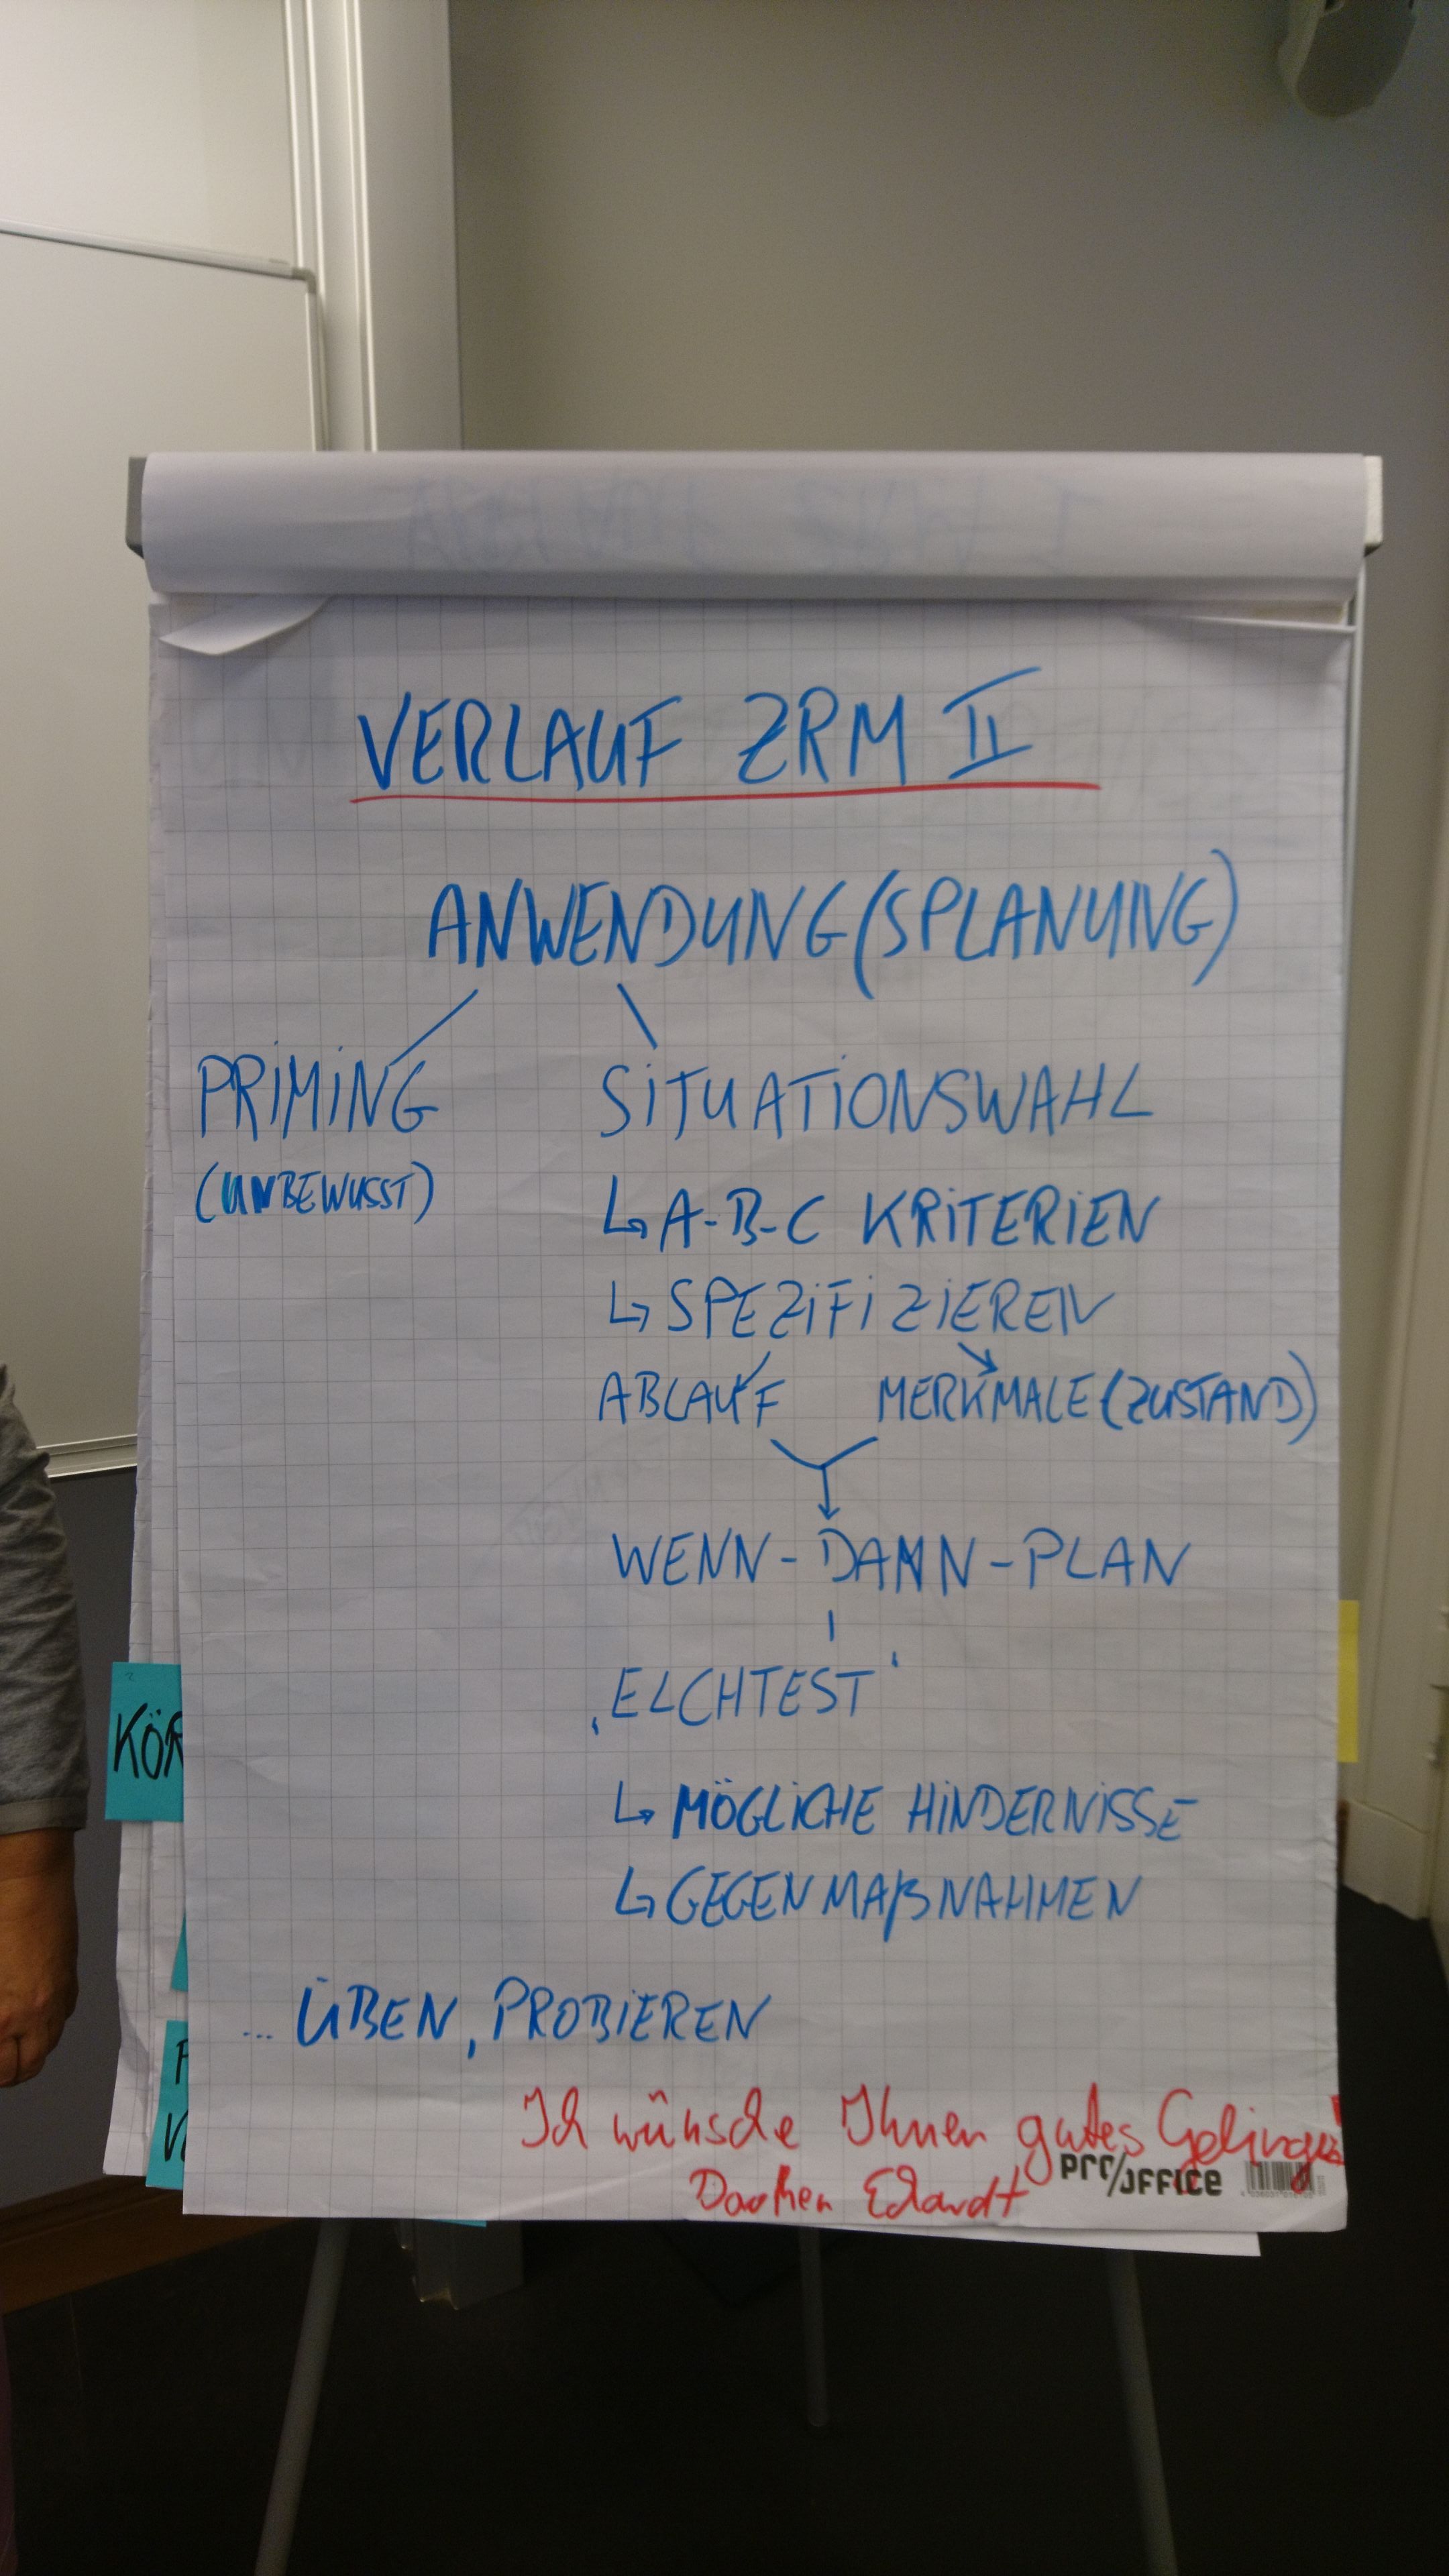 VERLAUF ZRM II
ANWENDUNG(SPLANUNG)
PRIMING SITUATIONSWAHL
(UNBEWUSST)
↳ A-B-C KRITERIEN
↳ SPEZIFIZIEREN
ABLAUF MERKMALE (ZUSTAND)
WENN-DANN-PLAN
‚ELCHTEST‘
↳ MÖGLICHE HINDERNISSE
↳ GEGENMAßNAHMEN
... ÜBEN, PROBIEREN
Ich wünsche Ihnen gutes Gelingen!
Eckardt
PRO/OFFICE
KÖR